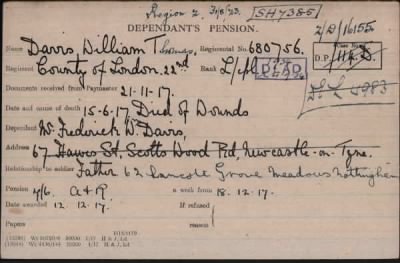 Region 2. 31/8/23. SH7385
DEPENDANT'S PENSION. 2/D/16155.
Name Davis, William Thomas, Regimental No. 680756.
Regiment County of London. 22nd Rank L/Cpl DEAD
Case No.
D.P.
4983
Documents received from Paymaster 21-11-17.
Date and name of death 15-6-17. Died of Wounds
Dependent Mr. Frederick W. Davis,
Address 67 Hawes St, Scotts Wood Rd, Newcastle-on-Tyne.
Relationship to soldier Father 62 Grove Meadows Nottingham
Pension 7/6. A & R. a week from 18.12.17.
Date awarded 12.12.17. If refused
reason